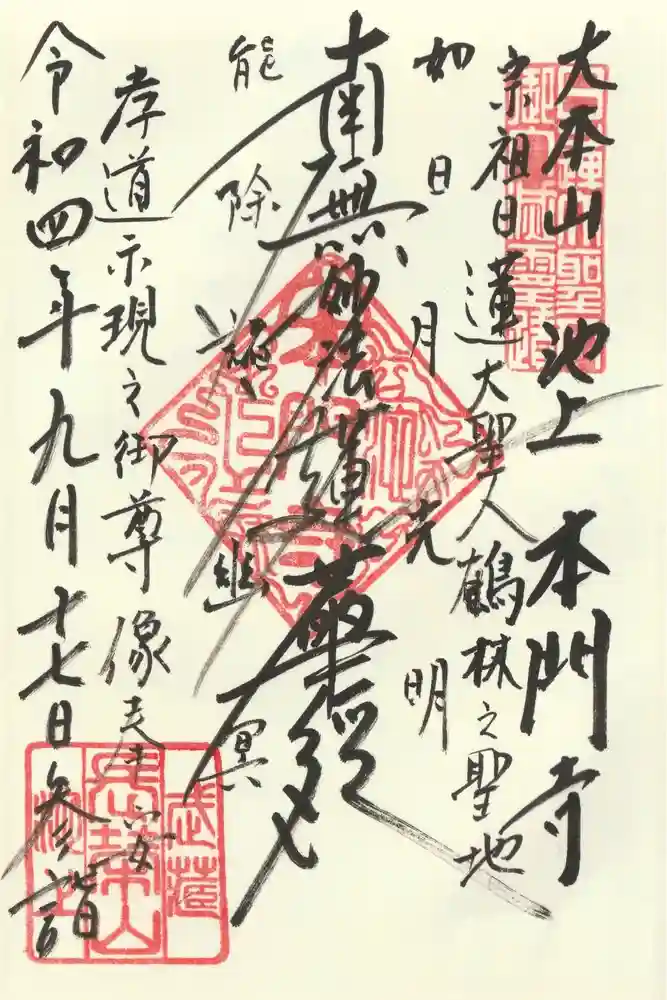 大本山 池上 本門寺
宗祖日蓮大聖人鶴林之聖地
如日月光明
南無妙法蓮華經
能除諸幽冥
孝道示現之御尊像奉安
令和四年九月十七日参詣
武蔵
長榮山
池上